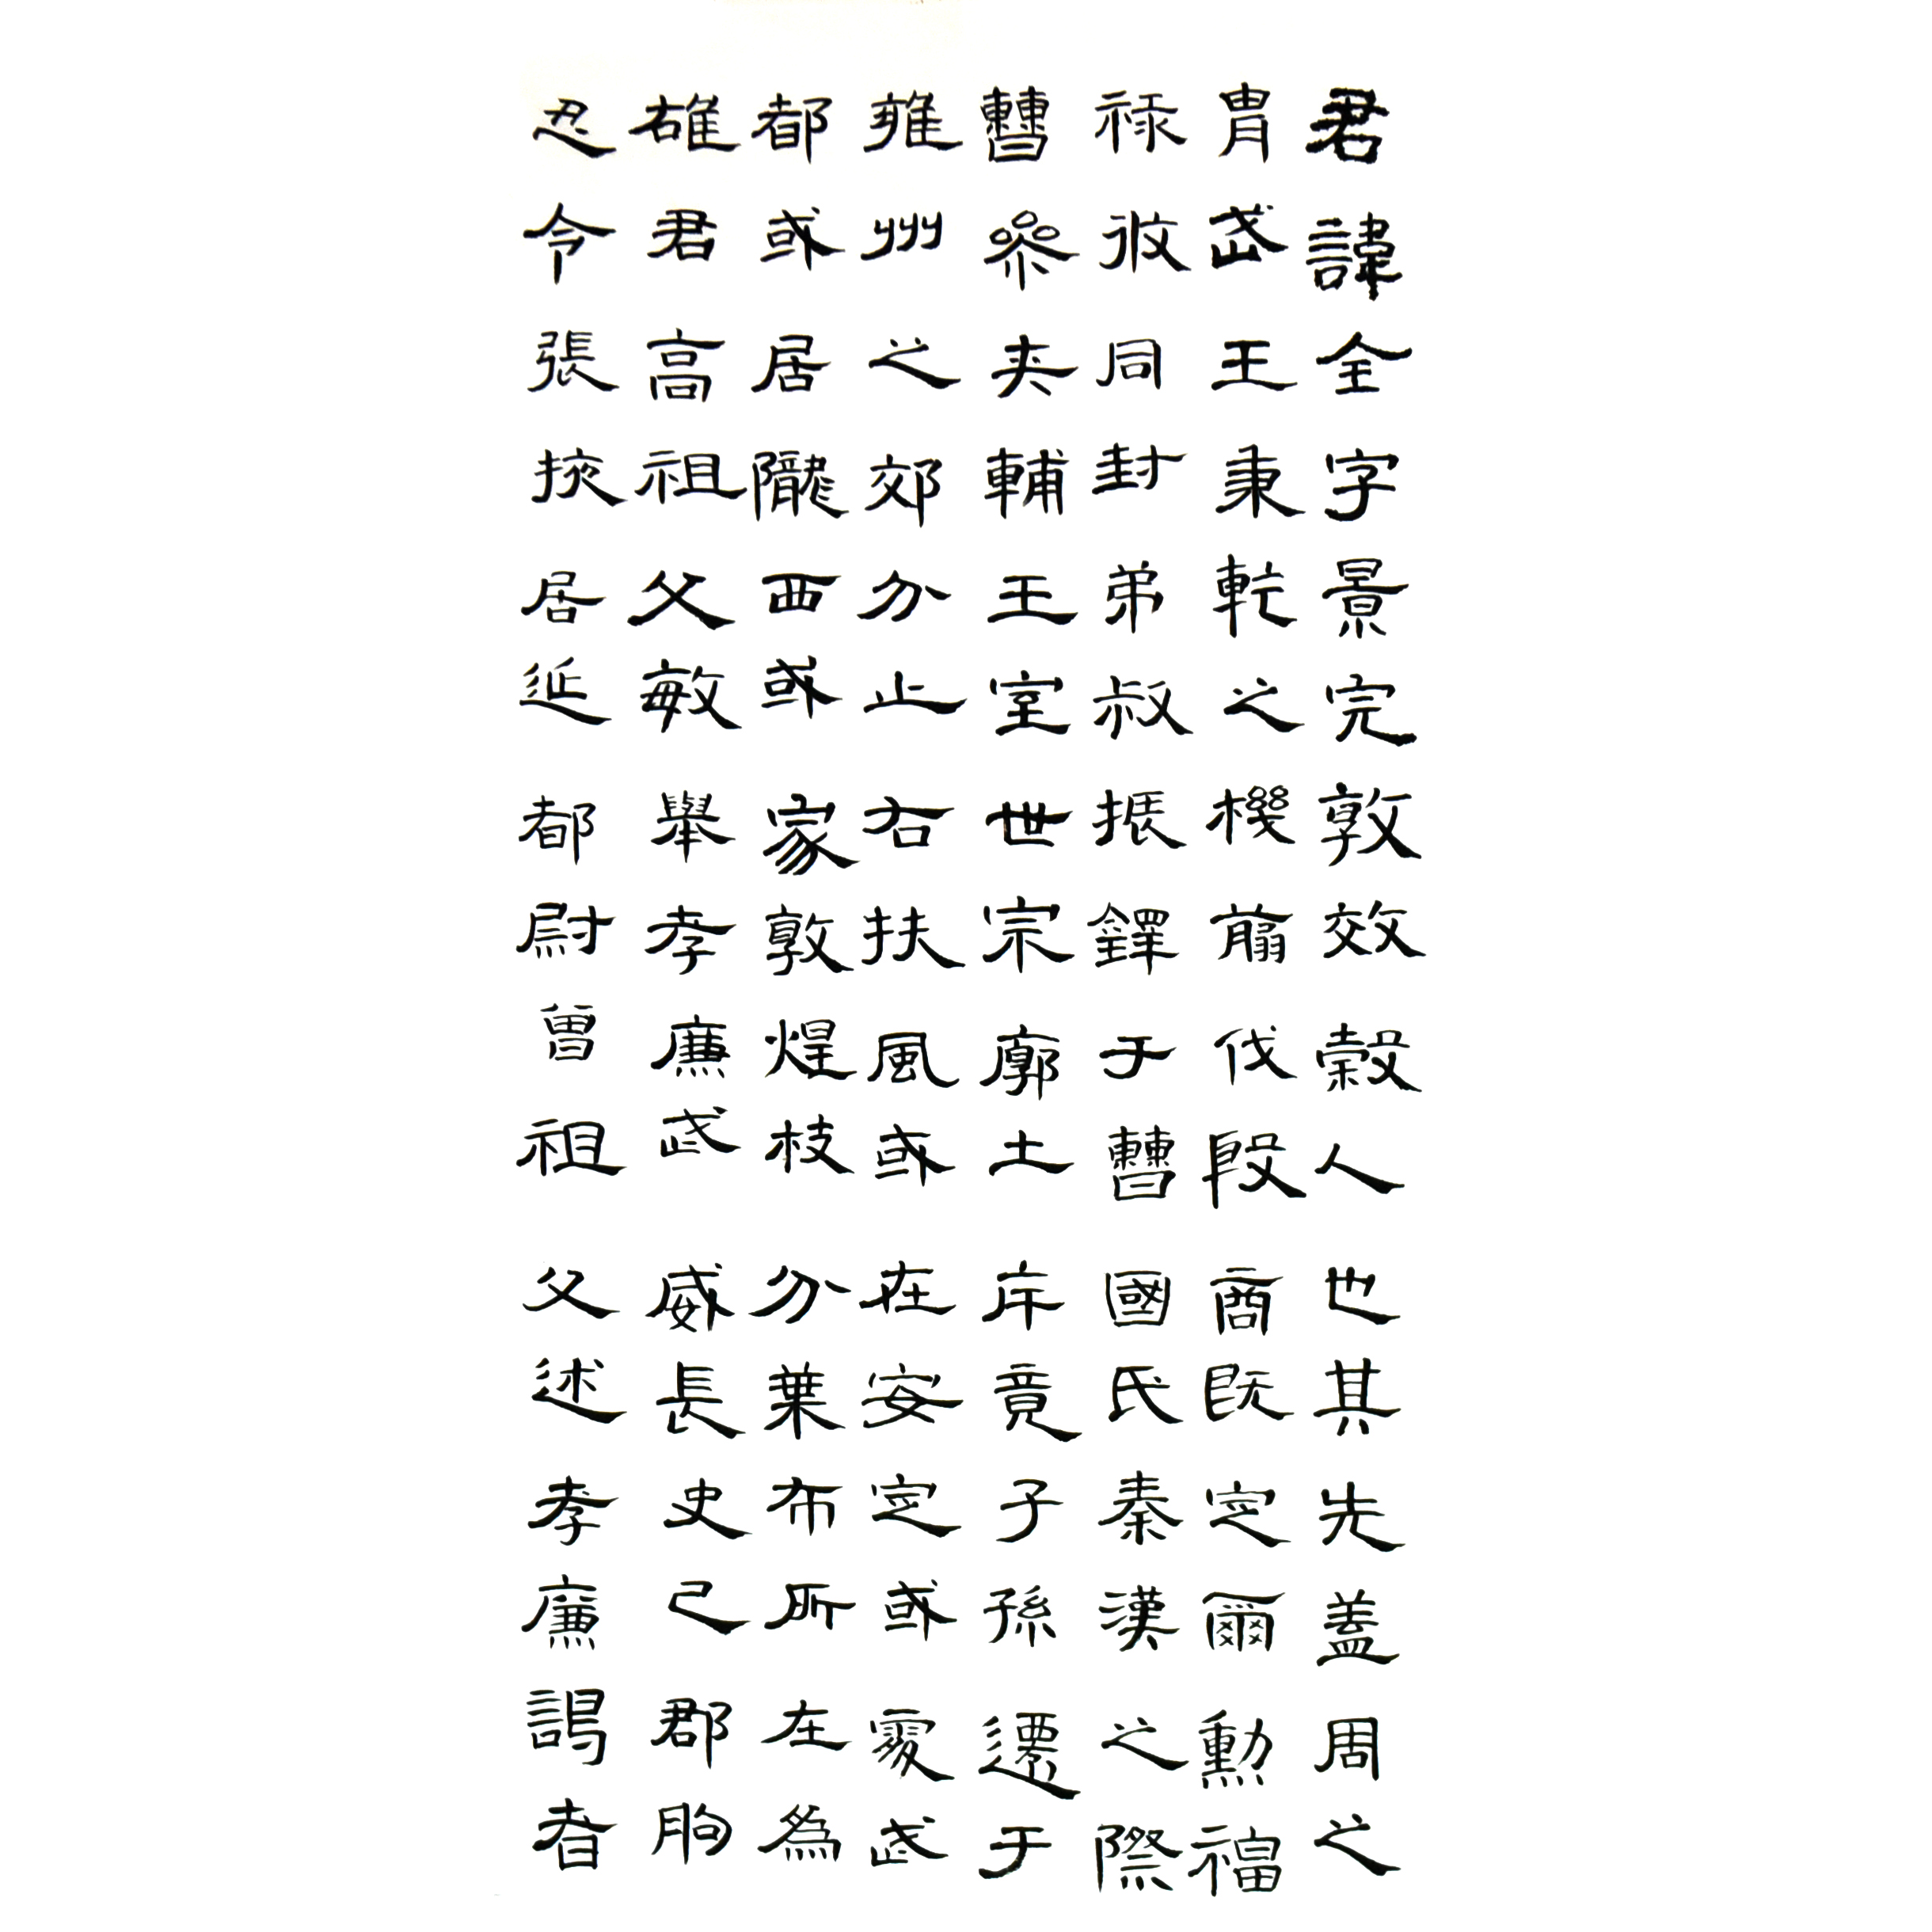 君諱全字景完敦效穀人也其先蓋周之
胄武王秉乾之機翦伐殷商既定爾勳福
祿攸同封弟叔振鐸于曹國氏秦漢之際
曹參夾輔王室世宗廓土斥竟子孫遷于
雍州之郊分止右扶風或在安定或處武
都或居隴西或家敦煌枝分葉布所在爲
雄君高祖父敏舉孝廉武威長史巴郡朐
忍令張掖居延都尉曾祖父述孝廉謁者